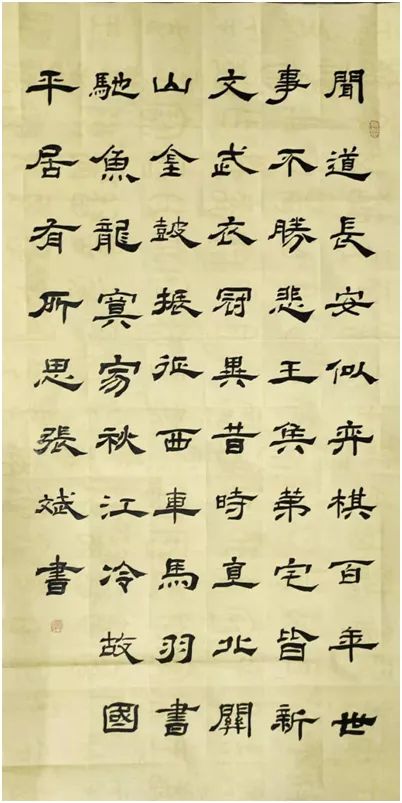 聞道長安似弈棋百年世
事不勝悲王侯第宅皆新
文武衣冠異昔時直北關
山金鼓振征西車馬羽書
馳魚龍寞秋江冷故國
平居有所思張斌書